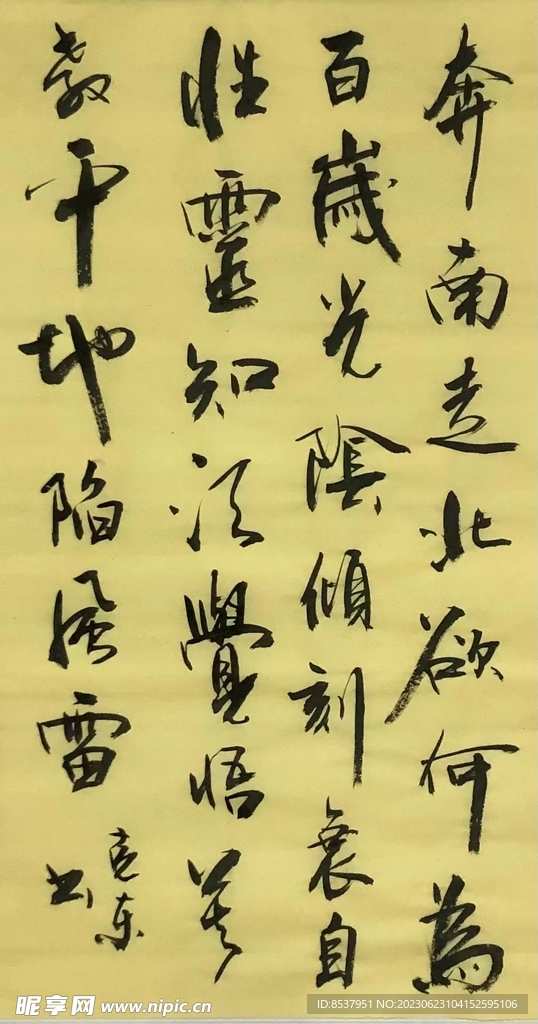 奔南走北欲何為
百歲光陰傾刻衰自
性靈知須覺悟莫
教干地陷風雷
克东
书
昵享网 www.nipic.cn
ID:8537951 NO:20230623104152595106